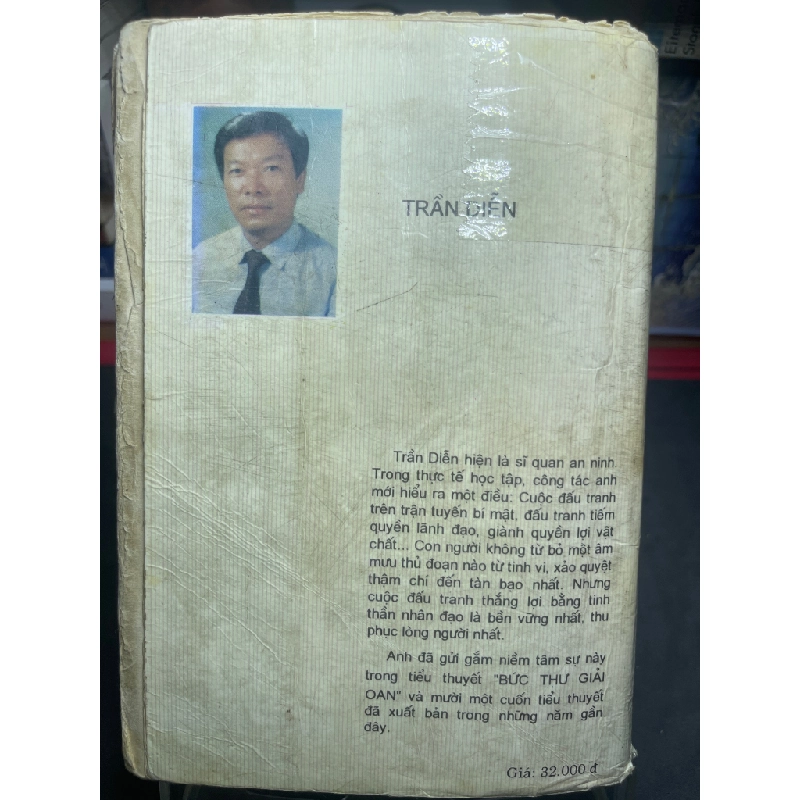 TRẦN DIỄN
Trần Diễn hiện là sĩ quan an ninh
Trong thực tế học tập, công tác anh
mới hiểu ra một điều: Cuộc đấu tranh
trên trận tuyến bí mật, đấu tranh tiếm
quyền lãnh đạo, giành quyền lợi vật
chất... Con người không từ bỏ một âm
mưu thủ đoạn nào từ tinh vi, xảo quyệt
thậm chí đến tàn bạo nhất. Nhưng
cuộc đấu tranh thắng lợi bằng tinh
thần nhân đạo là bền vững nhất, thu
phục lòng người nhất.
Anh đã gửi gắm niềm tâm sự này
trong tiểu thuyết "BỨC THƯ GIẢI
OAN" và mười một cuốn tiểu thuyết
đã xuất bản trong những năm gần
đây.
Giá: 32.000 đ